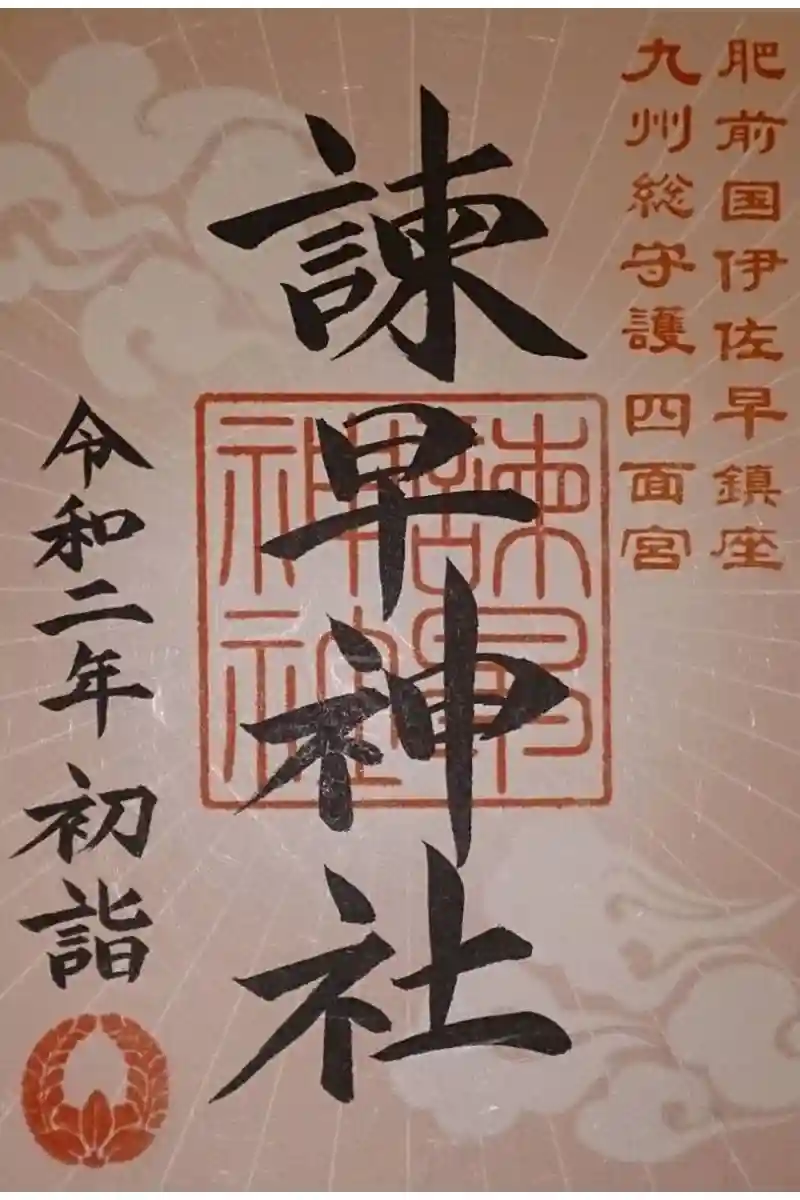 肥前国伊佐早鎮座
九州総守護 四面宮
諫早神社
諫早神社
令和二年 初詣